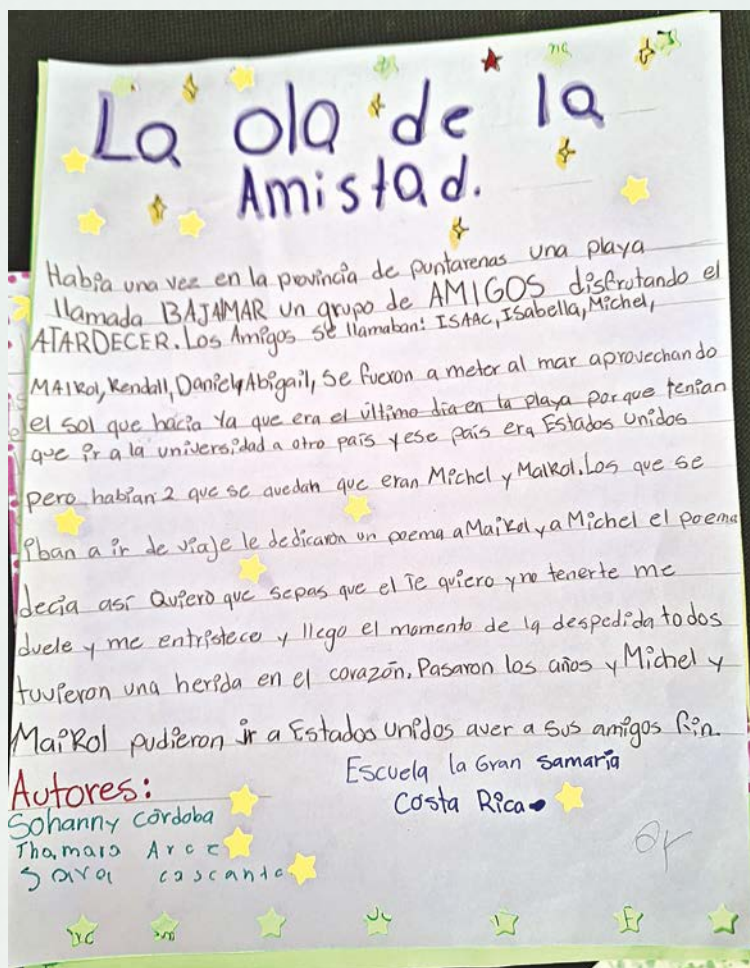 La ola de la
Amistad.
Había una vez en la provincia de puntarenas una playa
llamada BAJAMAR un grupo de AMIGOS disfrutando el
ATARDECER. Los Amigos se llamaban: ISAAC, ISabella, Michel,
MAIKol, Kendall, Daniel y Abigail, se fueron a meter al mar aprovechando
el sol que hacia Ya que era el último dia en la playa porque tenian
que ir a la universidad a otro país y ese país era Estados Unidos
pero habian 2 que se quedan que eran Michel y MaIkol. Los que se
iban a ir de viaje le dedicaron un poema a Maikol y a Michel el poema
decia así Quiero que sepas que el Te quiero y no tenerte me
duele y me entristece y llego el momento de la despedida todos
tuvieron una herida en el corazón. Pasaron los años y Michel y
MaiKol pudieron ir a Estados Unidos aver a sus amigos fin.
Escuela la Gran Samaria
Costa Rica
Autores:
Sohanny Córdoba
Thamara Arce
Sara cascante